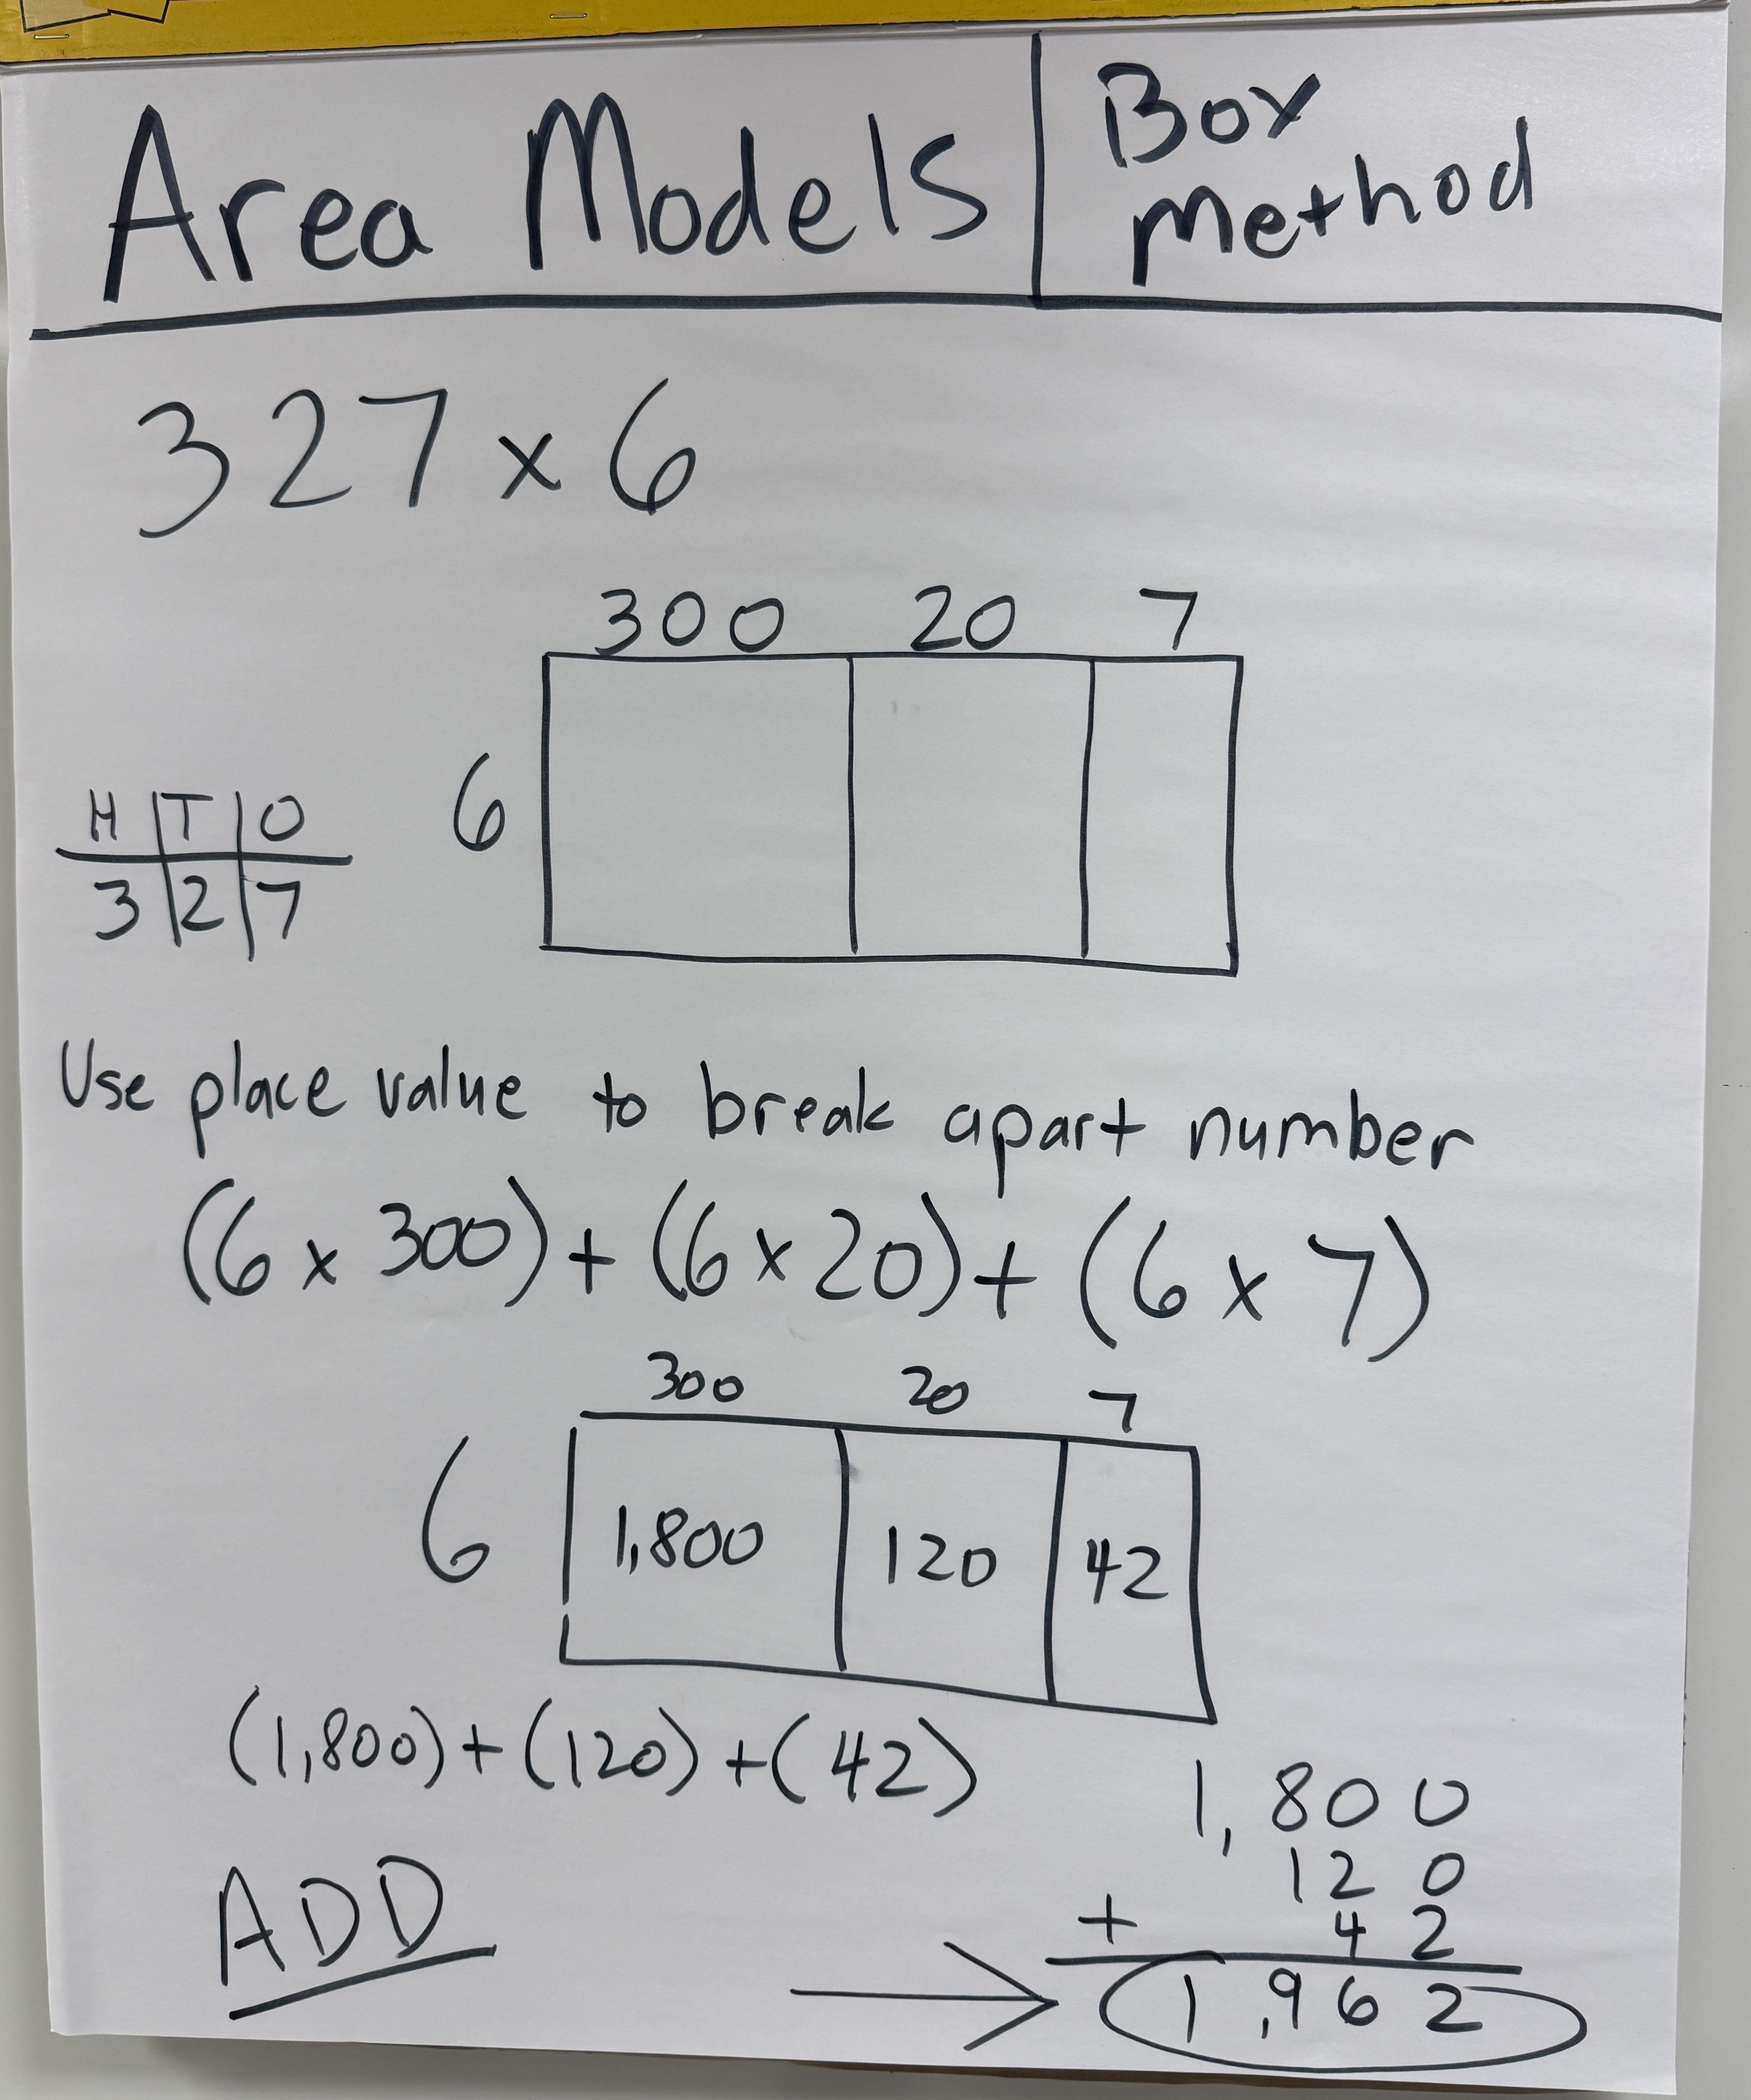 Area Models
Box
Method
327 x 6
300 20 7
6
H T O
3 2 7
Use place value to break apart number
(6 x 300) + (6 x 20) + (6 x 7)
300 20 7
6 1,800 120 42
(1,800) + (120) + (42)
ADD
1,800
120
+ 42
1,962